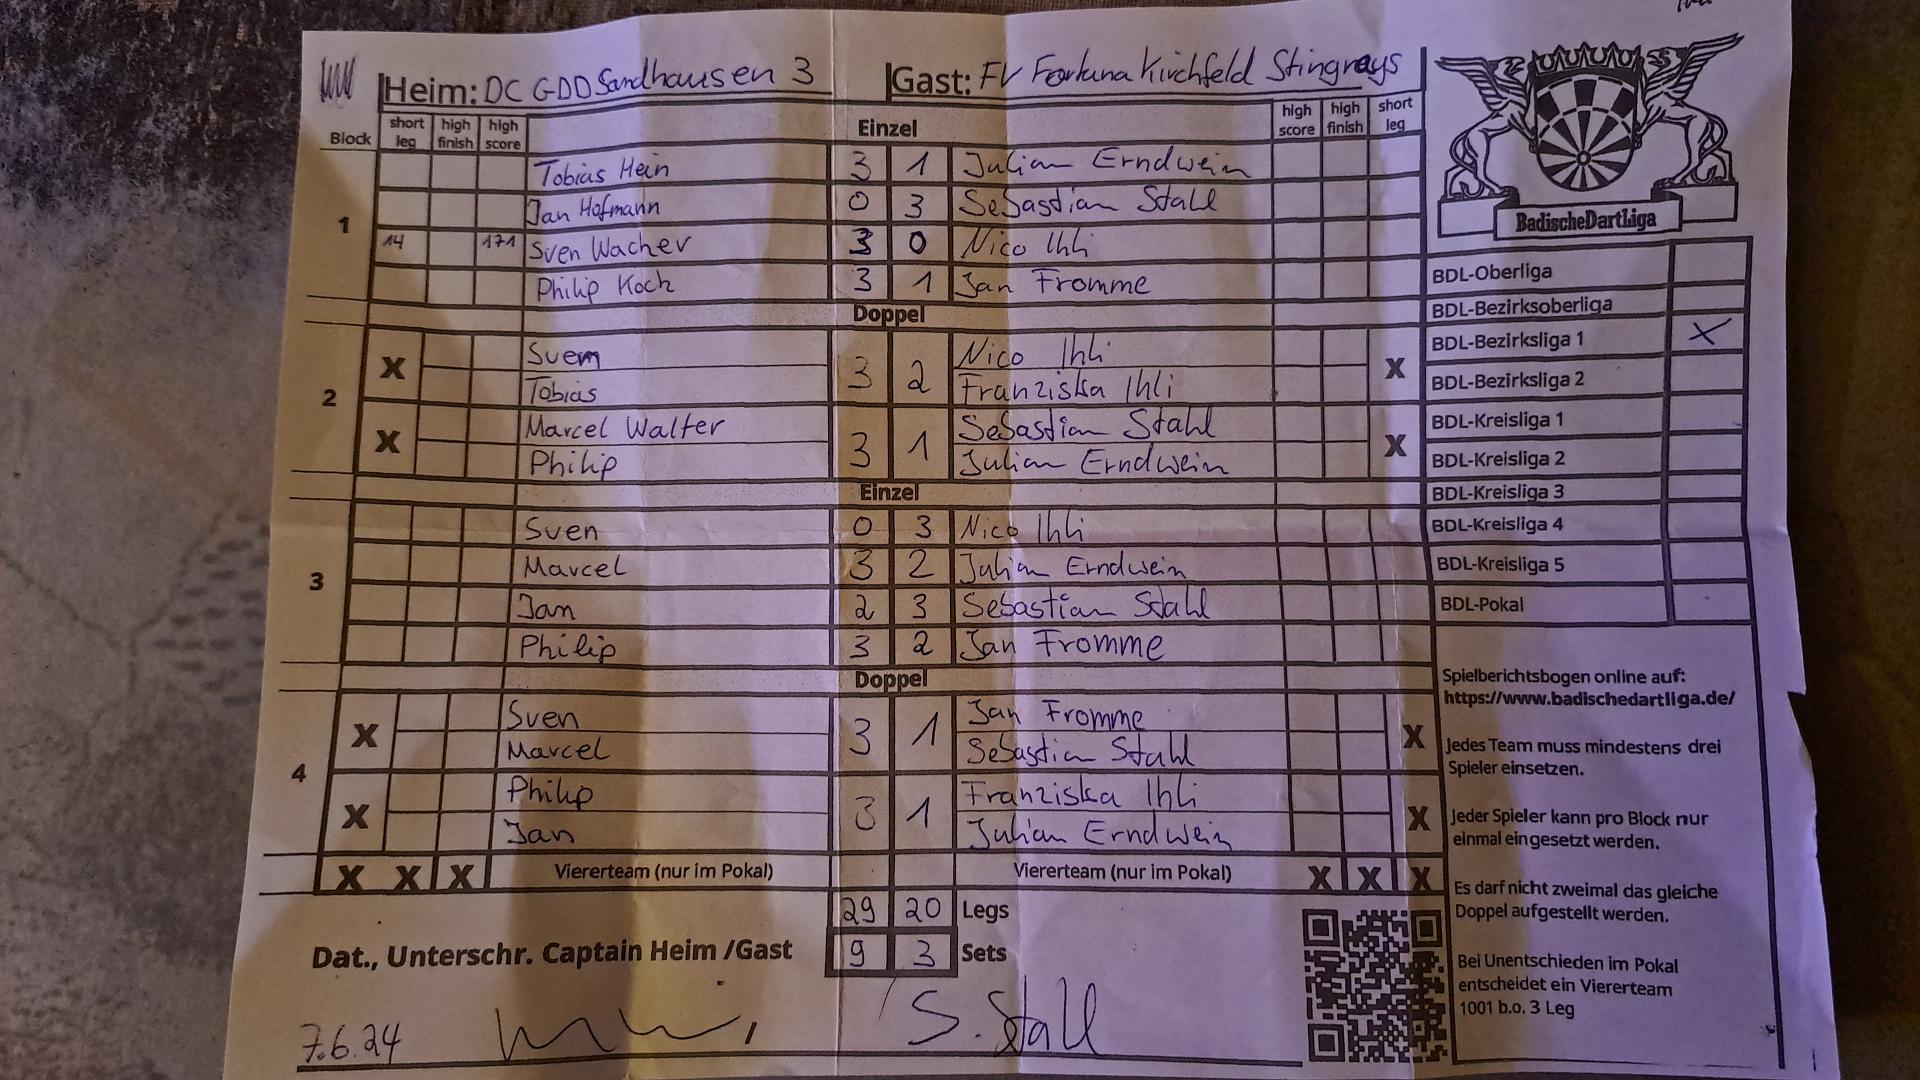 Heim: DC GDD Sandhausen 3 Gast: FV Fortuna Kirchfeld Stingrays
Block short leg high finish high score Einzel high score high finish short leg
1
Tobias Hein 3 1 Julian Erndwein
Jan Hofmann 0 3 Sebastian Stahl
14 171 Sven Wacher 3 0 Nico Ihli
Philip Koch 3 1 Jan Fromme
Doppel
2
X Sven 3 2 Nico Ihli X
Tobias Franziska Ihli
X Marcel Walter 3 1 Sebastian Stahl X
Philip Julian Erndwein
Einzel
3
Sven 0 3 Nico Ihli
Marcel 3 2 Julian Erndwein
Jan 2 3 Sebastian Stahl
Philip 3 2 Jan Fromme
Doppel
4
X Sven 3 1 Jan Fromme X
Marcel Sebastian Stahl
X Philip 3 1 Franziska Ihli X
Jan Julian Erndwein
X X X Viererteam (nur im Pokal) Viererteam (nur im Pokal) X X X
29 20 Legs
Dat., Unterschr. Captain Heim /Gast 9 3 Sets
7.6.24 S. Stahl
BadischeDartLiga
BDL-Oberliga
BDL-Bezirksoberliga
BDL-Bezirksliga 1 X
BDL-Bezirksliga 2
BDL-Kreisliga 1
BDL-Kreisliga 2
BDL-Kreisliga 3
BDL-Kreisliga 4
BDL-Kreisliga 5
BDL-Pokal
Spielberichtsbogen online auf:
https://www.badischedartliga.de/
Jedes Team muss mindestens drei
Spieler einsetzen.
Jeder Spieler kann pro Block nur
einmal eingesetzt werden.
Es darf nicht zweimal das gleiche
Doppel aufgestellt werden.
Bei Unentschieden im Pokal
entscheidet ein Viererteam
1001 b.o. 3 Leg